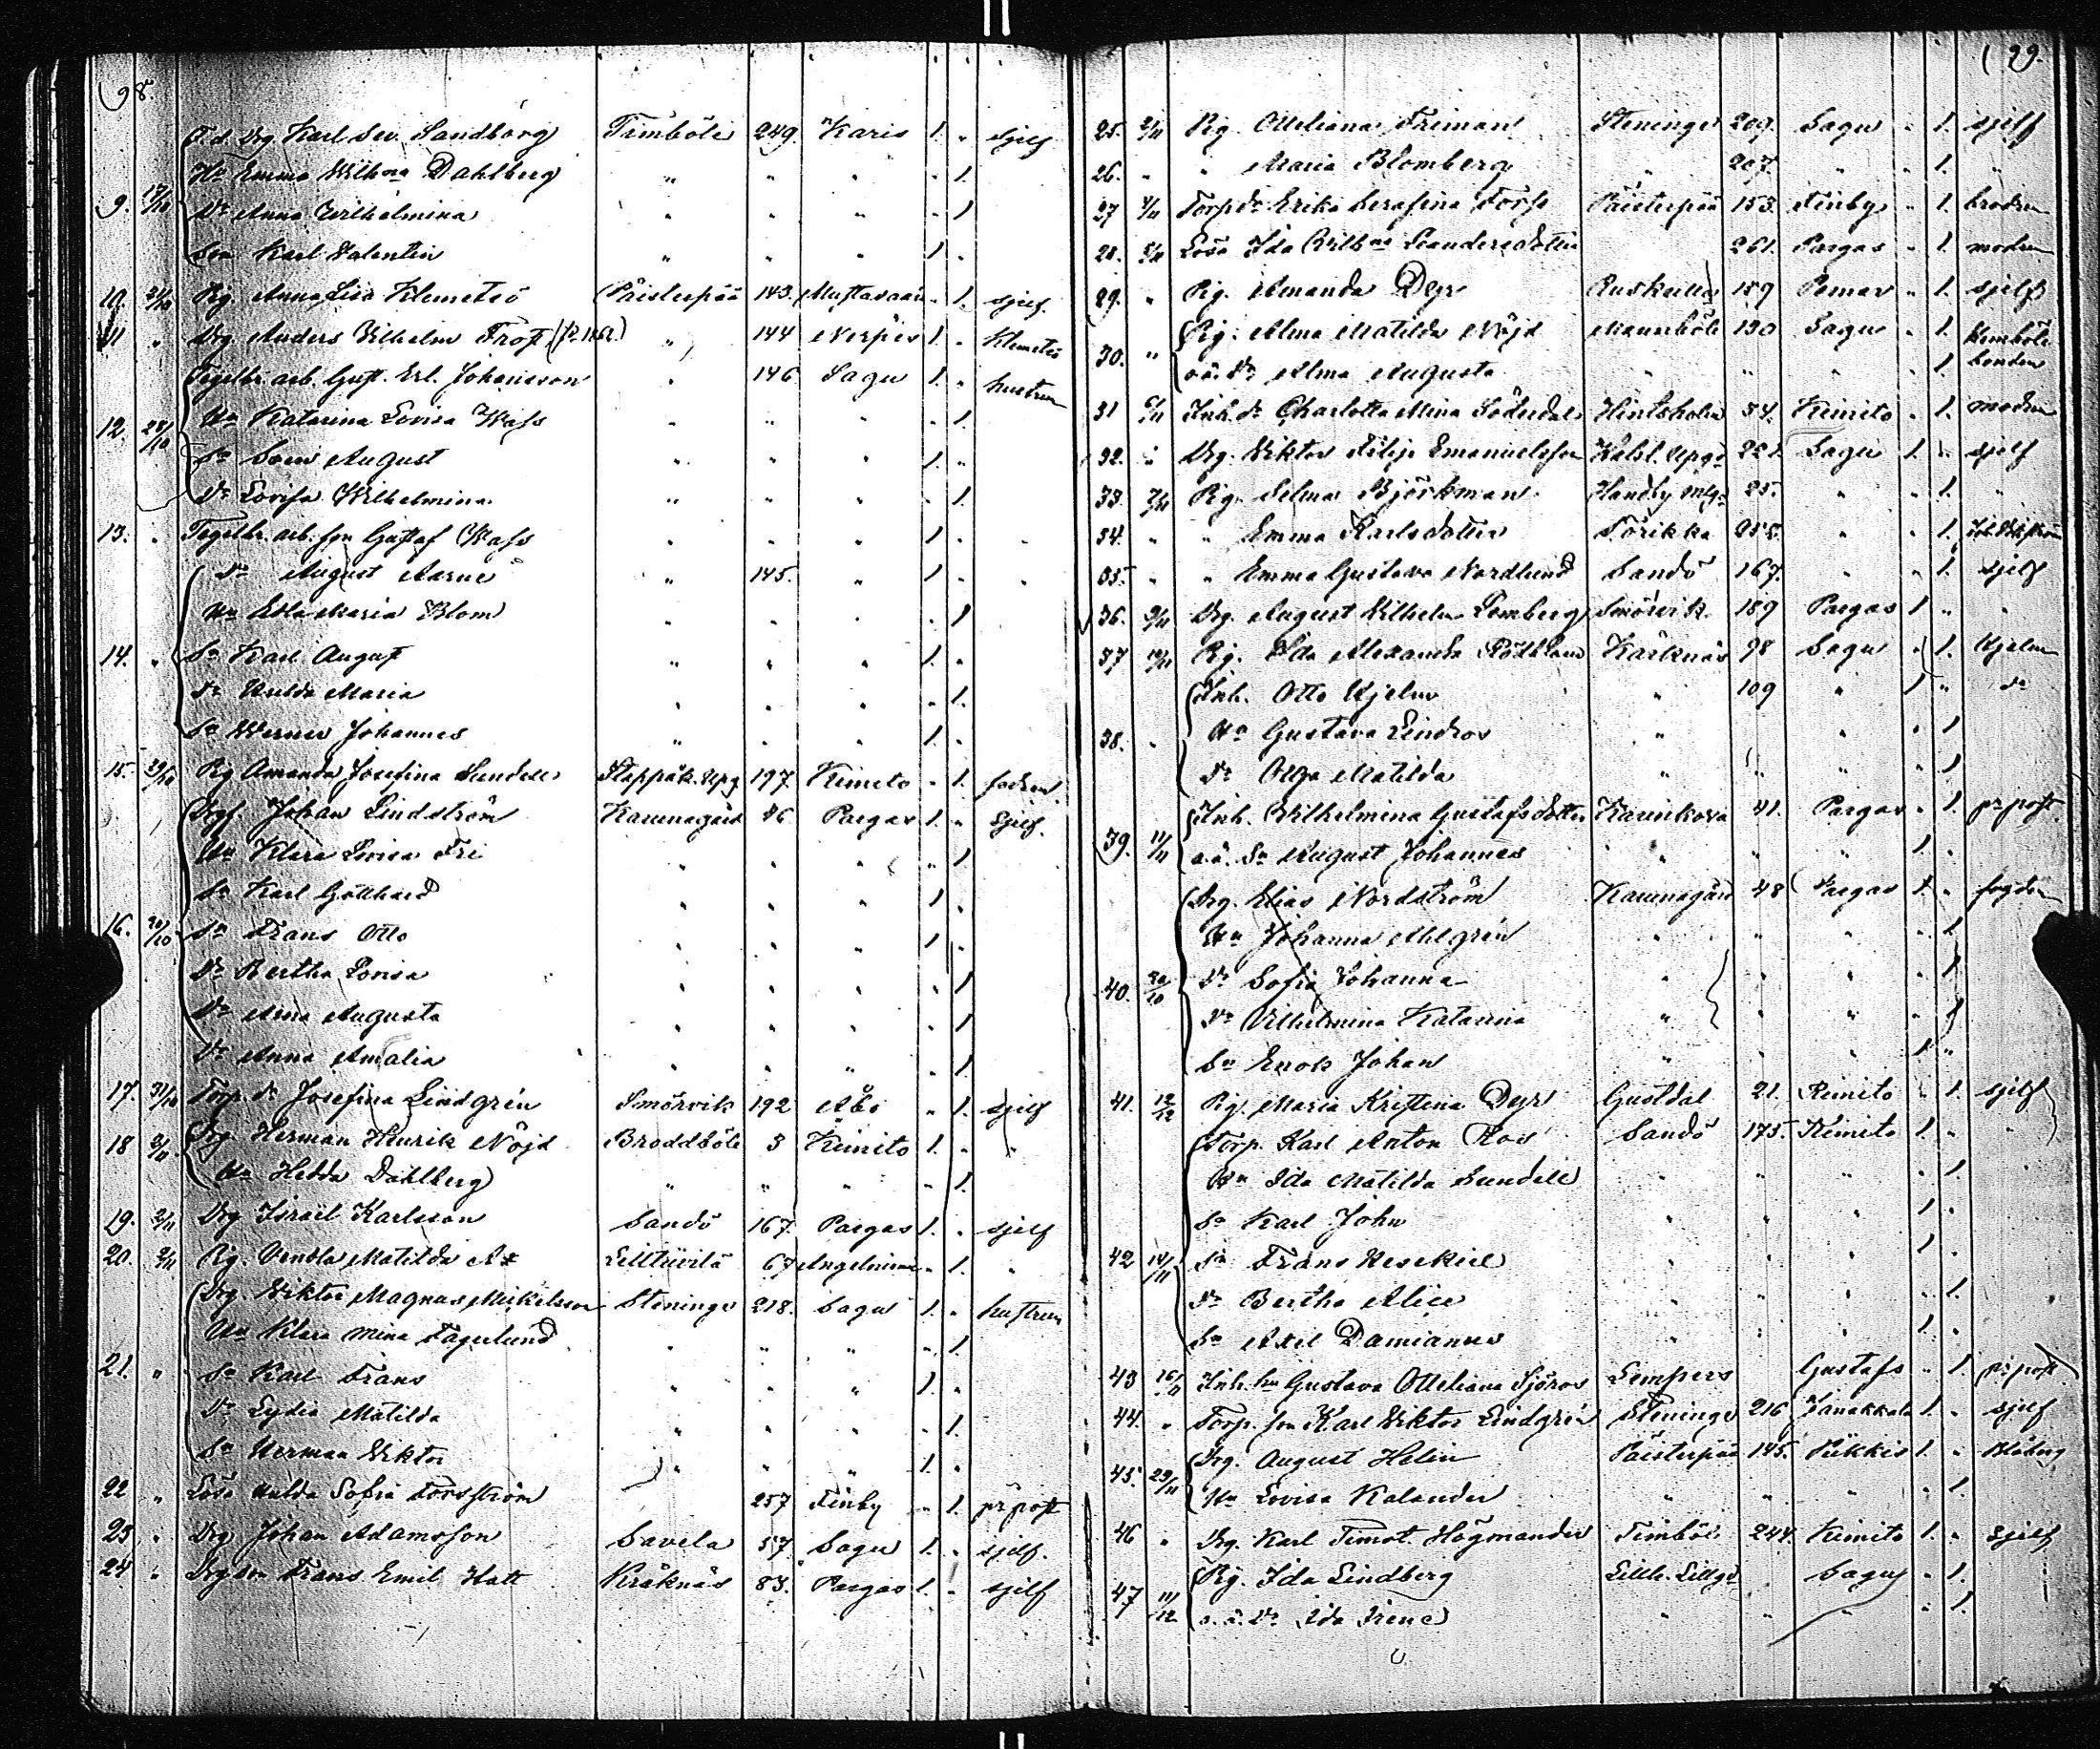 98.
F.d. Drg. Karl Sev. Sandborg Timböle 249. Karis 1. " sjelf
Hu Emma Wilhna Dahlberg " " " " 1.
9. 17/10 Dr Anna Wilhelmina " " " " 1
Son Karl Valentin " " " 1 "
10. 21/10 Pig. Anna Lisa Klemetsö Päisterpää 143. Mustasaari " 1. sjelf.
11 " Drg. Anders Vilhelm Frost 144 Nerpes 1. " Klemetsö
Tegelbr. arb. Gust. Erl. Johansson " 146 Sagu 1. " hustrun
12. 28/10 Hu Katarina Lovisa Wass " " " " 1.
Sn Sven August " " " 1. "
Dr Lovisa Wilhelmina " " " " 1.
13. " Tegelbr. arb. son Gustaf Wass " " " 1 " "
Dn August Aarne " 145. " 1 " "
Hu Edla Maria Blom " " " " 1
14. " Sn Karl August " " " 1. "
Dr Hulda Maria " " " " 1.
Sn Werner Johannes " " " 1. "
15. 29/10 Pig Amanda Josefina Sundell Stappäk. Upg. 197. Kimito " 1. fadren
Drg. Johan Lindström Karunagård 86 Pargas 1. " sjelf.
Hu Klara Lovisa Fri " " " " 1
Sn Karl Gotthard " " " 1 "
16. 30/10 Sn Frans Otto " " " 1 "
Dr Bertha Lovisa " " " " 1
Dr Alma Augusta " " " " 1
Dr Anna Amalia " " " " 1
17. 31/10 Torp. dr Josefina Lindgrén Smörvik 192 Åbo " 1. sjelf
18 2/11. Drg Herman Henrik Nöjd Broddböle 3 Kimito 1. " "
Hu Hedda Dahlberg " " " " 1.
19. 2/11 Drg Israel Karlsson Sandö 167. Pargas 1. " sjelf
20. 2/11 Pig. Vendla Matilda Ax 67 Angelniemi " 1. "
Drg. Viktor Magnus Mickelsson Steninge 218. Sagu 1. " hustrun
Hu Klara Mina Fagerlund " " " " 1.
21. " Sn Karl Frans " " " 1. "
Dr Lydia Matilda " " " " 1.
Sn Herman Viktor " " " 1. "
22 " Lösa Hulda Sofia Forsström 257 Finby " 1. pr post
23 " Drg Johan Adamsson Savela 57. Sagu 1. " sjelf.
24 " Drg son Frans Emil Hatt Kråknäs 83. Pargas 1. " sjelf
99.
25. 2/11 Pig. Otteliana Friman Steninge 209. Sagu " 1. sjelf
26. " " Maria Blomberg " 207. " " 1. "
27 4/11 Torp dr Erika Serafina Torp Päisterpää 153. Finby " 1. brodren
28. 5/11 Lösa Ida Wilhna Leandersdotter 261. Pargas " 1. modren
29. " Pig. Amanda Dyr Ruskulla 159 Pemar " 1. sjelf
30. " Pig. Alma Matilda Nöjd Mannböle 130 Sagu " 1.
o.ä. Dr Alma Augusta " " " " 1 bonden
31 6/11 Inh. dr Charlotta Mina Söderdal Hintsholm 54. Kimito " 1. modren
32. " Drg. Viktor Filip Emanuelsson 221. Sagu 1 " sjelf
33. 7/11 Pig. Selma Björkman Handby 25. " " 1. "
34. " " Emma Karlsdotter Sorikka 255. " " 1.
35. " " Emma Gustava Nordlund Sandö 167. " " 1. sjelf
36. 9/11 Drg. August Vilhelm Lemberg Smörvik 189 Pargas 1 " "
37 10/11 Pig. Ida Alexandra Kråknäs 98 Sagu " 1. Hjelm
Inh. Otto Hjelm " 109 " 1 " dr
38. " Hu Gustava Lindros " " " 1
Dr Olga Matilda " " " " 1
39. 11/11 Inh. Wilhelmina Gustafsdotter Karunkova 41. Pargas " 1. pr post.
o.ä. Sn August Johannes " " " 1. "
Drg. Elias Nordström Karunagård 48 Pargas 1. " fogden
Hu Johanna Ahlgrén " " " " 1
40. 30/10 Dr Sofia Johanna " " " " 1
Dr Vilhelmina Katarina " " " " 1
Sn Enok Johan " " " 1 "
41. 12/12 Pig. Maria Kristina Dyr Gustdal 21. Kimito " 1. sjelf
Torp. Karl Anton Ros Sandö 175. Kimito 1. " "
Hu Ida Matilda Sundell " " " " 1. "
Sn Karl John " " " 1. "
42 14/11 Sn Frans Hesekiel " " " 1 "
Dr Bertha Alice " " " " 1.
Sn Axel Damianus " " " 1. "
43 16/11 Inh. hu Gustava Otteliana Sjöros Lempers Gustafs " 1. pr post.
44. " Torp. son Karl Viktor Lindgrén Steninge 216 Janakkala 1. " sjelf
45. 29/11 Drg. August Helin Päisterpää 145. Pikkis 1. " Blåberg
Hu Lovisa Kalander " " " " 1.
46 " Drg. Karl Timot. Högmander Timböle 244. Kimito 1. " sjelf
47 11/12 Pig. Ida Lindberg Sagu " 1.
o.ä. Dr Ida Irene " " " " 1.